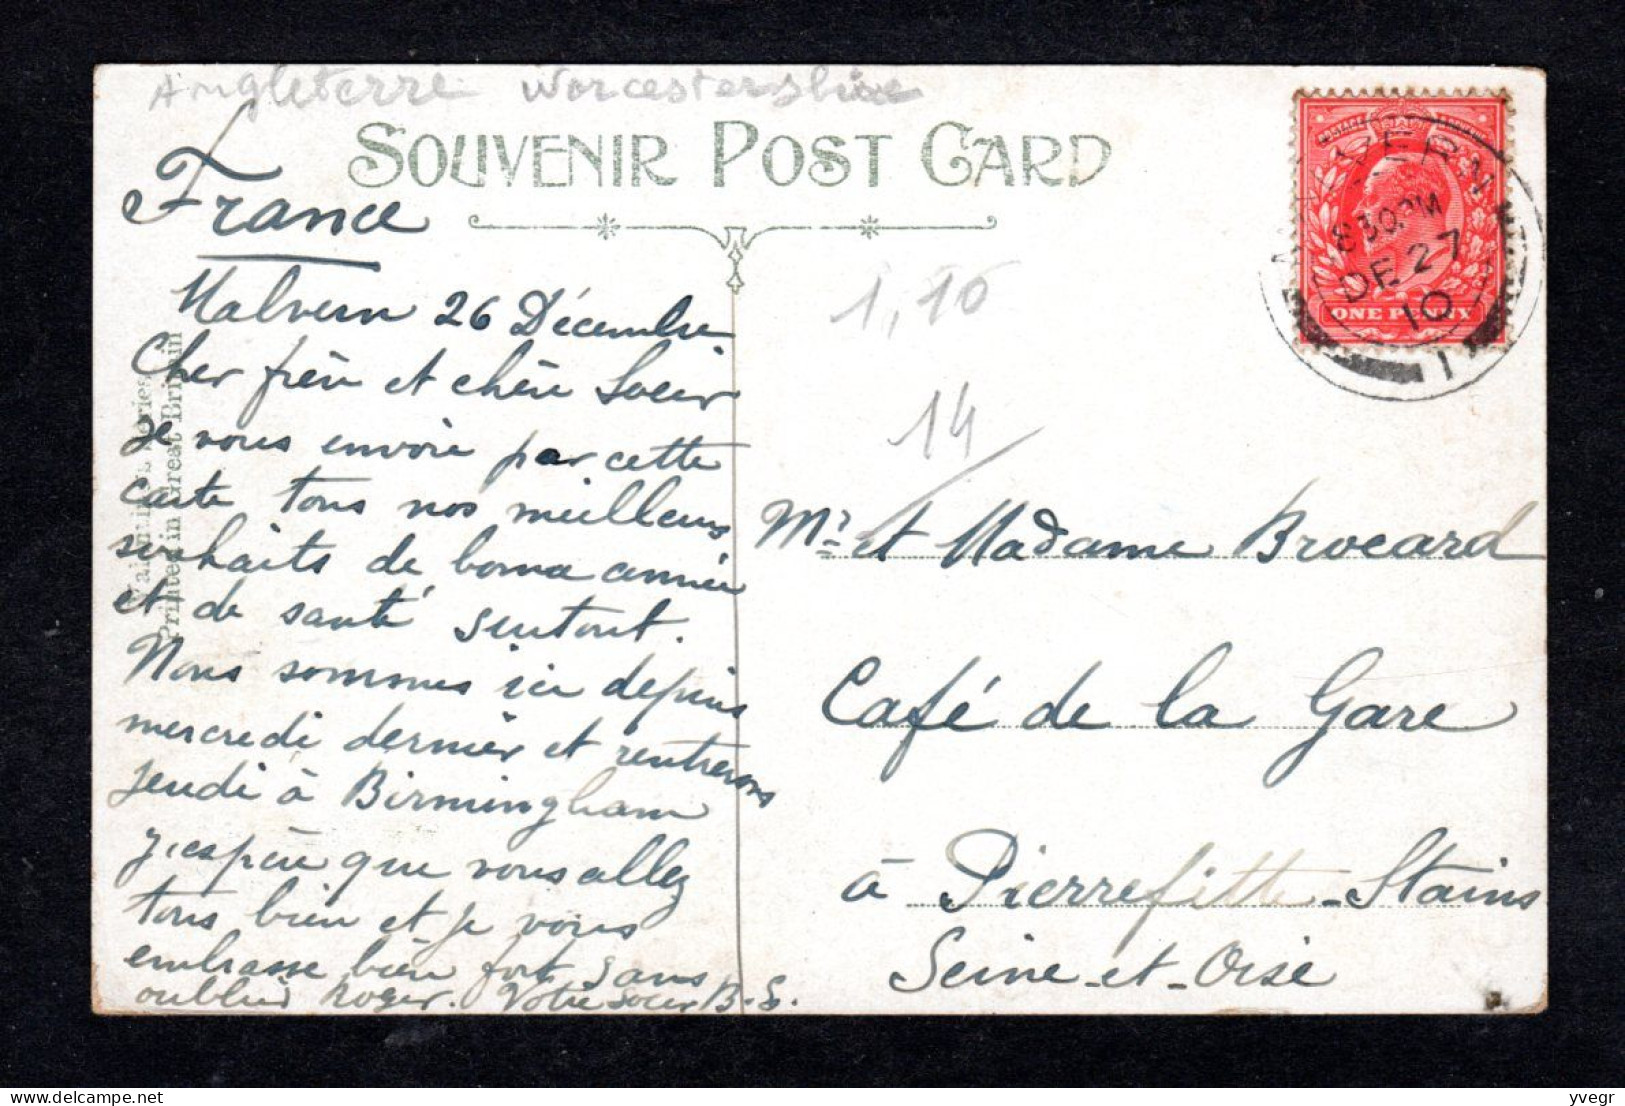 Angleterre Worcestershire
SOUVENIR POST CARD
France
Malvern 26 Décembre
Cher frère et chère Soeur
je vous envoie par cette
carte tous nos meilleurs
souhaits de bonne année
et de santé surtout.
Nous sommes ici depuis
mercredi dernier et rentrerons
jeudi à Birmingham
j'espère que vous allez
tous bien et je vous
embrasse bien fort sans
oublier Roger. Votre soeur B.S.
Printed in Great Britain
1,10
14
Mr et Madame Brocard
Café de la Gare
à Pierrefitte-Stains
Seine-et-Oise
POSTAGE
ONE PENNY
MALVERN
8 30 PM
DE 27
10
1
yvegr